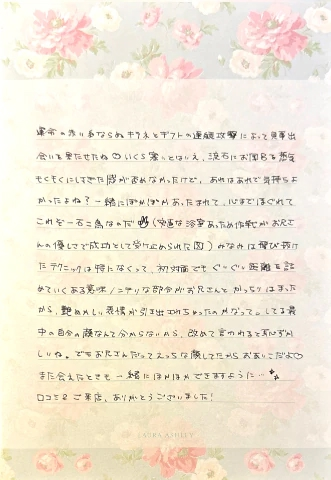 運命の赤い糸ならぬキラネとギフトの連続攻撃によって見事出
会いを果たせたね♡いくら寒いとはいえ、流石にお風呂を蒸気
もくもくにしすぎた感が否めなかったけど、あれはあれで気持ちよ
かったよね？一緒にぽかぽかあったまれて、心までほぐれて
これぞ一石二鳥なのだ(空きな浴室あっため作戦がお兄さ
んの優しさで成功として受け止められた図)みなみは飛び抜け
たテクニックは特になくって、初対面でもぐいぐい距離を詰
めていくある意味ノーデリな部分がお兄さんとがっちりはまった
から、艶めかしい表情が引き出されちゃったのかなって。してる最
中の自分の顔なんて分からないから、改めて言われると恥ずか
しいね。でもお兄さんだってえっちな顔してたからおあいこだよ♡
また会えたときも一緒にぽかぽかできますように…
口コミ&ご来店、ありがとうございました!
LAURA ASHLEY